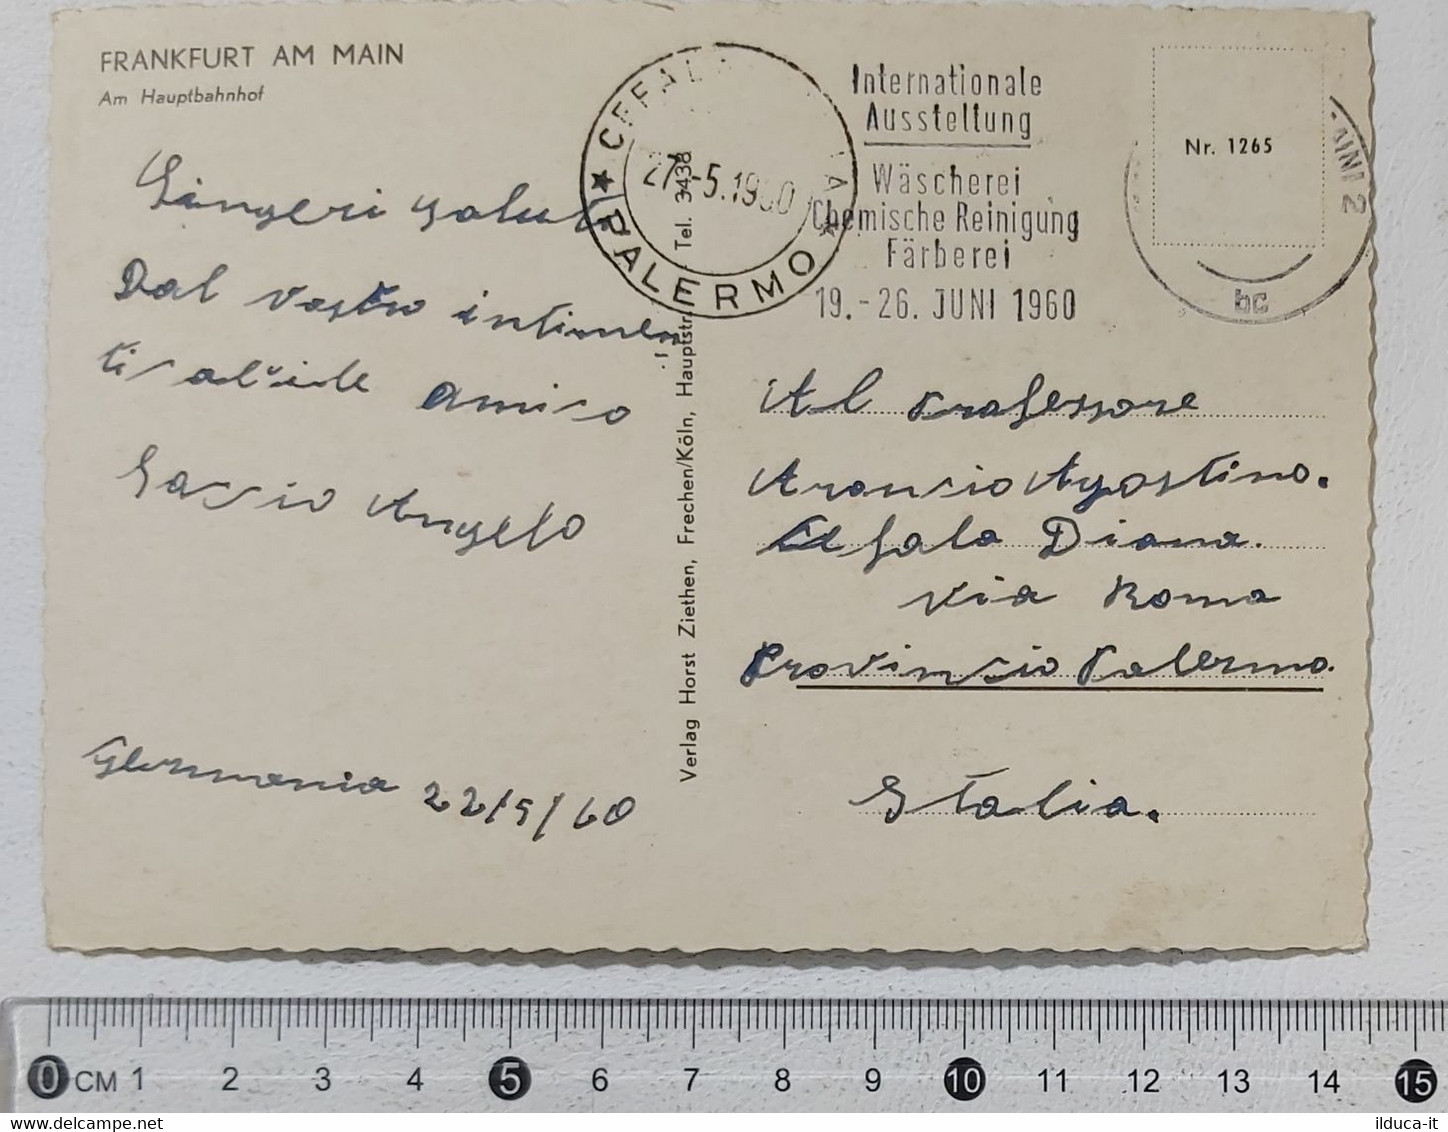 FRANKFURT AM MAIN
Am Hauptbahnhof
Singeri saluti
Dal vostro intimen
ti
amico
Sassio Angelo
Germania 22/5/60
CEFALA
27-5.1960
PALERMO
Internationale
Ausstellung
Wäscherei
Chemische Reinigung
Färberei
19.-26. JUNI 1960
AIN 2
bc
Nr. 1265
Verlag Horst Ziethen, Frechen/Köln, Hauptstr. Tel. 3438
Al Professore
Aronsio Agostino.
Cefala Diana.
via Roma
Provinsio Palermo.
Italia.
0 CM 1 2 3 4 5 6 7 8 9 10 11 12 13 14 15
delcampe.net
ilduca-it